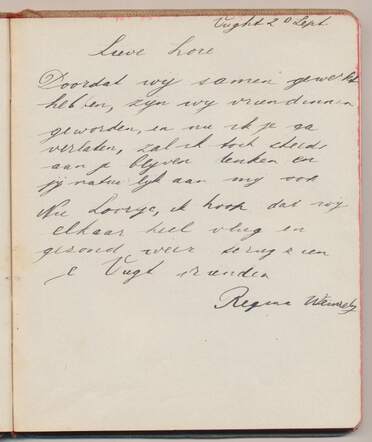 Vught 20 Sept.
Lieve Lore
Doordat wij samen gewerkt
hebben, zyn wy vriendinnen
geworden, en nu ik je ga
verlaten, zal ik toch steeds
aan je blijven denken en
jij natuurlijk aan my ook
Nu Loortje, ik hoop dat wy
elkaar heel vlug en
gezond weer terug zien
Vugt vrienden
Regina